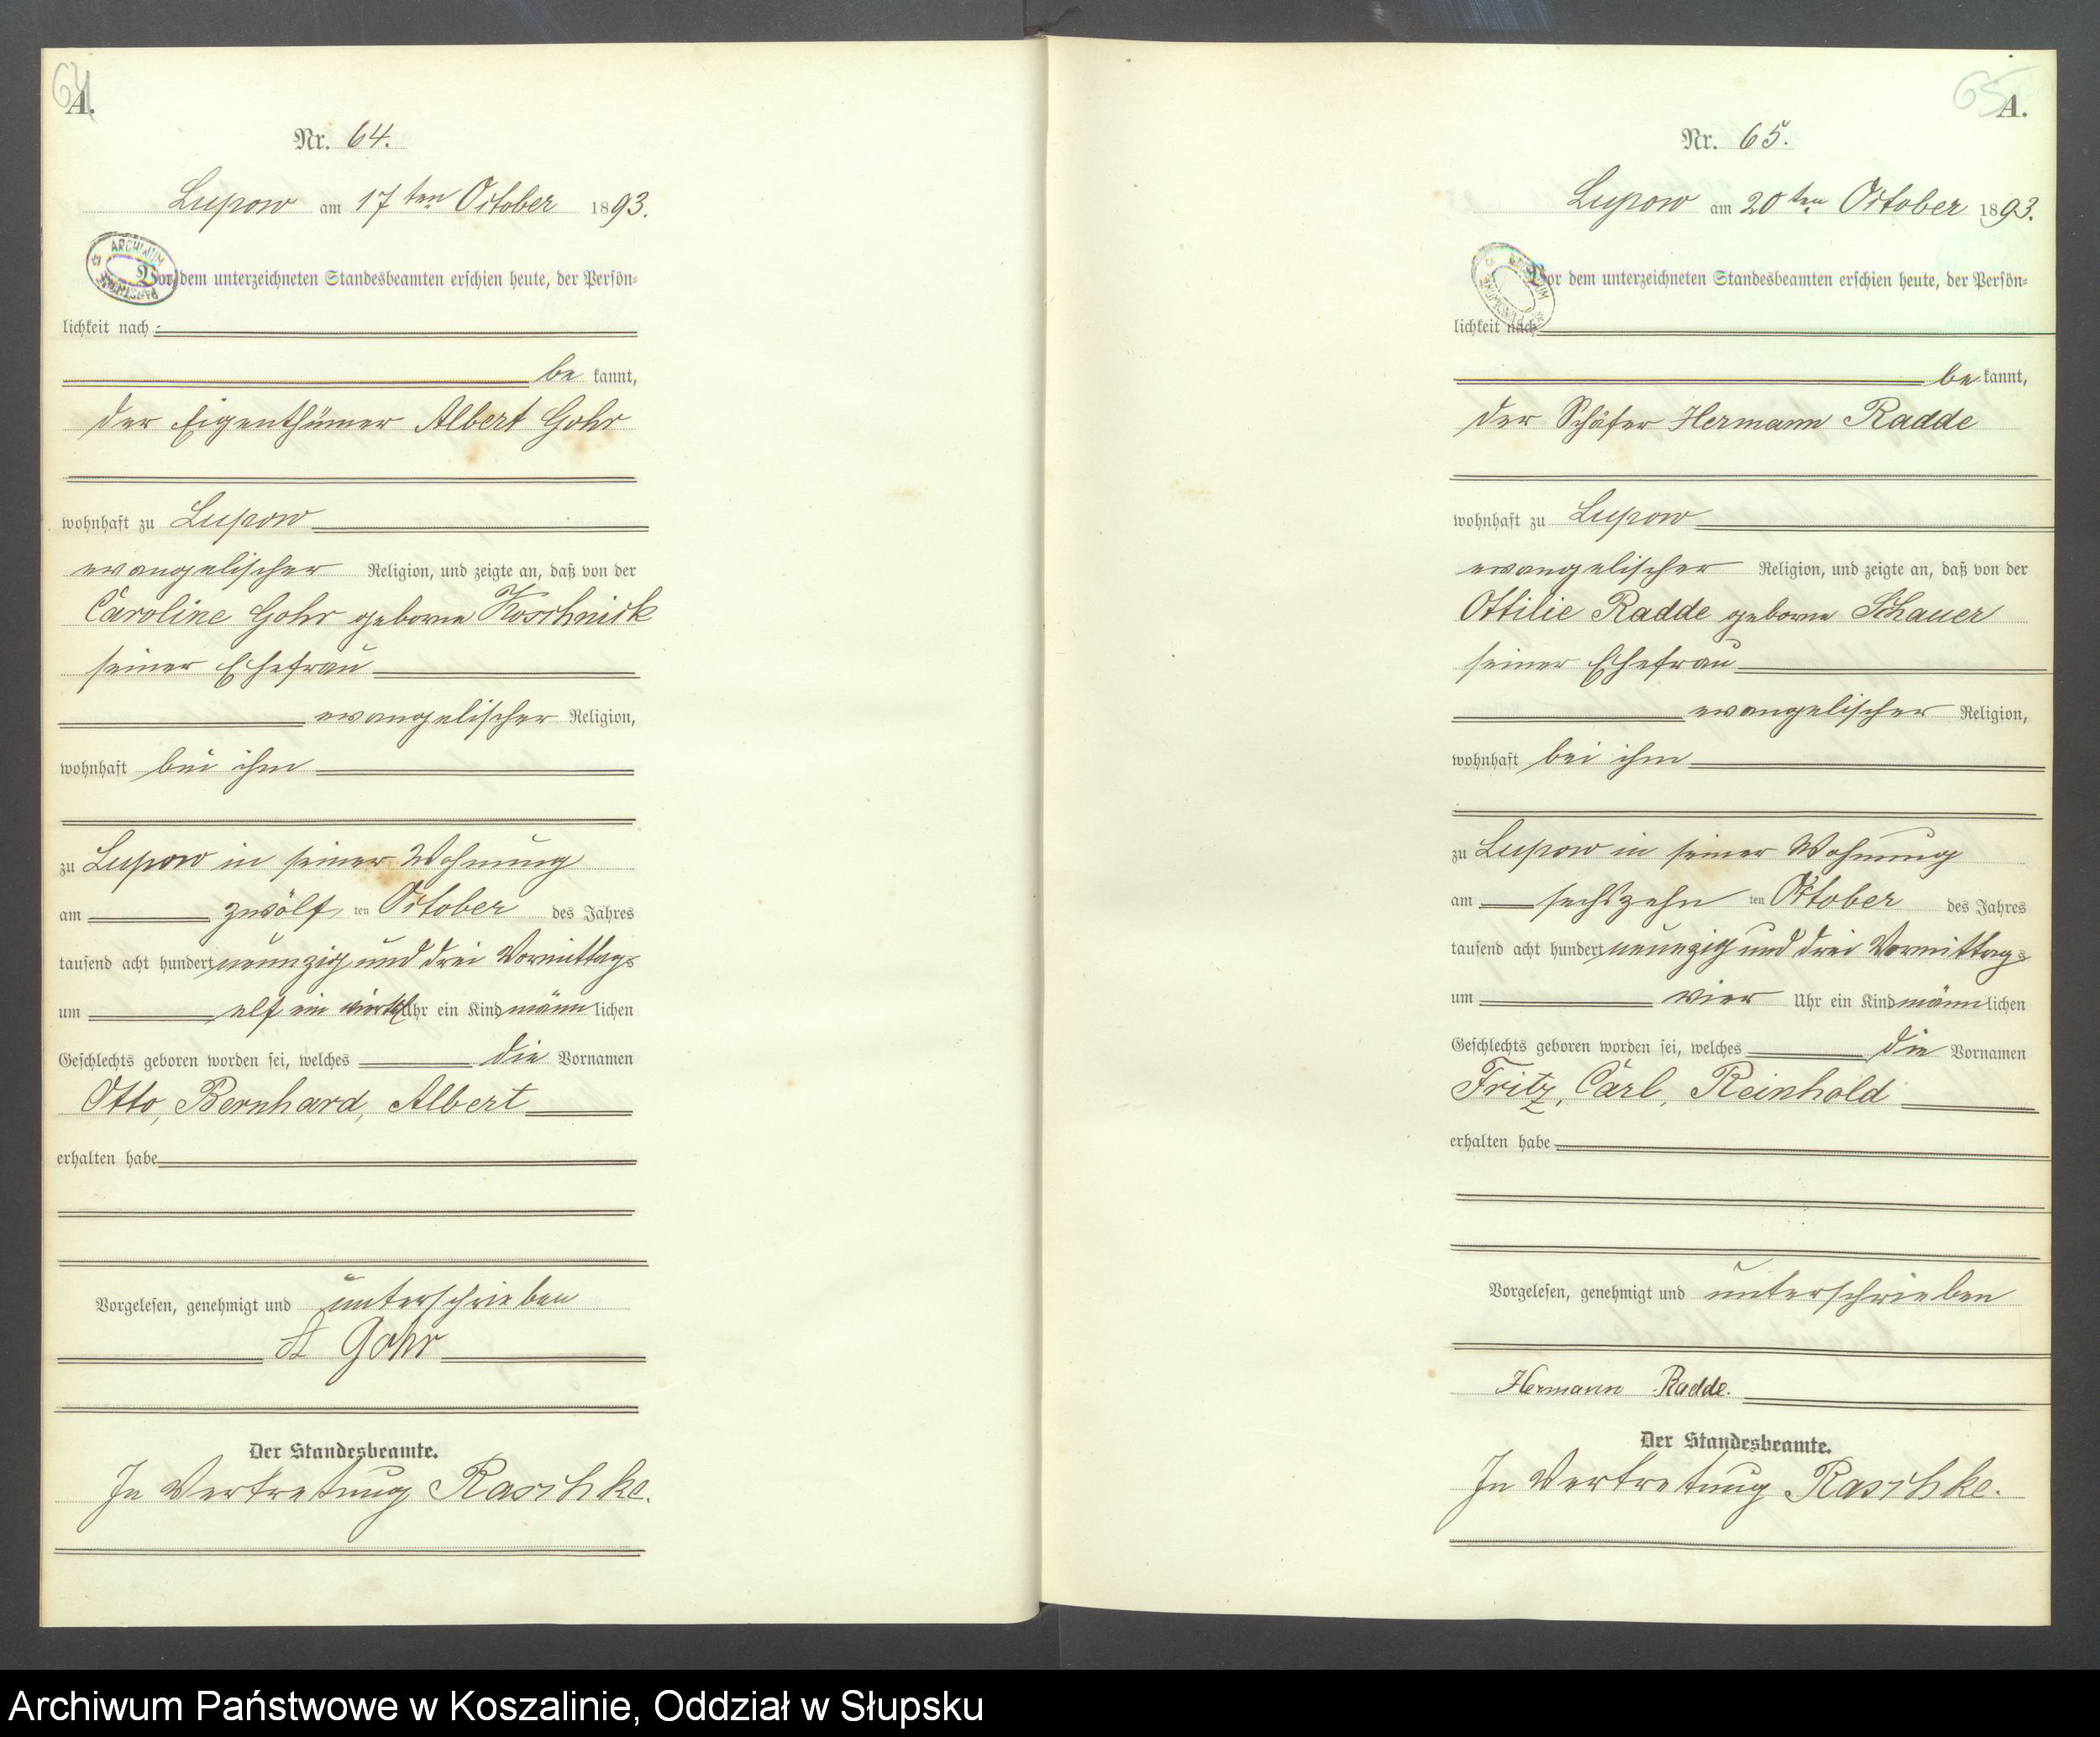 64
A.
Nr. 64.
Lupow am 17ten October 1893.
ARCHIWUM
Vor dem unterzeichneten Standesbeamten erschien heute, der Persön-
lichkeit nach
be kannt,
der Eigenthümer Albert Gohr
wohnhaft zu Lupow
evangelischer Religion, und zeigte an, daß von der
Caroline Gohr geborne Koschnick
seiner Ehefrau
evangelischer Religion,
wohnhaft bei ihm
zu Lupow in seiner Wohnung
am zwölf ten October des Jahres
tausend acht hundert neunzig und drei Vormittags
um elf ein viertel Uhr ein Kind männ lichen
Geschlechts geboren worden sei, welches die Vornamen
Otto, Bernhard, Albert
erhalten habe
Vorgelesen, genehmigt und unterschrieben
A Gohr
Der Standesbeamte.
In Vertretung Raschke.
65
A.
Nr. 65.
Lupow am 20ten October 1893.
Vor dem unterzeichneten Standesbeamten erschien heute, der Persön-
lichkeit nach
be kannt,
der Schäfer Hermann Radde
wohnhaft zu Lupow
evangelischer Religion, und zeigte an, daß von der
Ottilie Radde geborne Schauer
seiner Ehefrau
evangelischer Religion,
wohnhaft bei ihm
zu Lupow in seiner Wohnung
am sechszehn ten October des Jahres
tausend acht hundert neunzig und drei Vormittags
um vier Uhr ein Kind männ lichen
Geschlechts geboren worden sei, welches die Vornamen
Fritz, Carl, Reinhold
erhalten habe
Vorgelesen, genehmigt und unterschrieben
Hermann Radde.
Der Standesbeamte.
In Vertretung Raschke.
Archiwum Państwowe w Koszalinie, Oddział w Słupsku